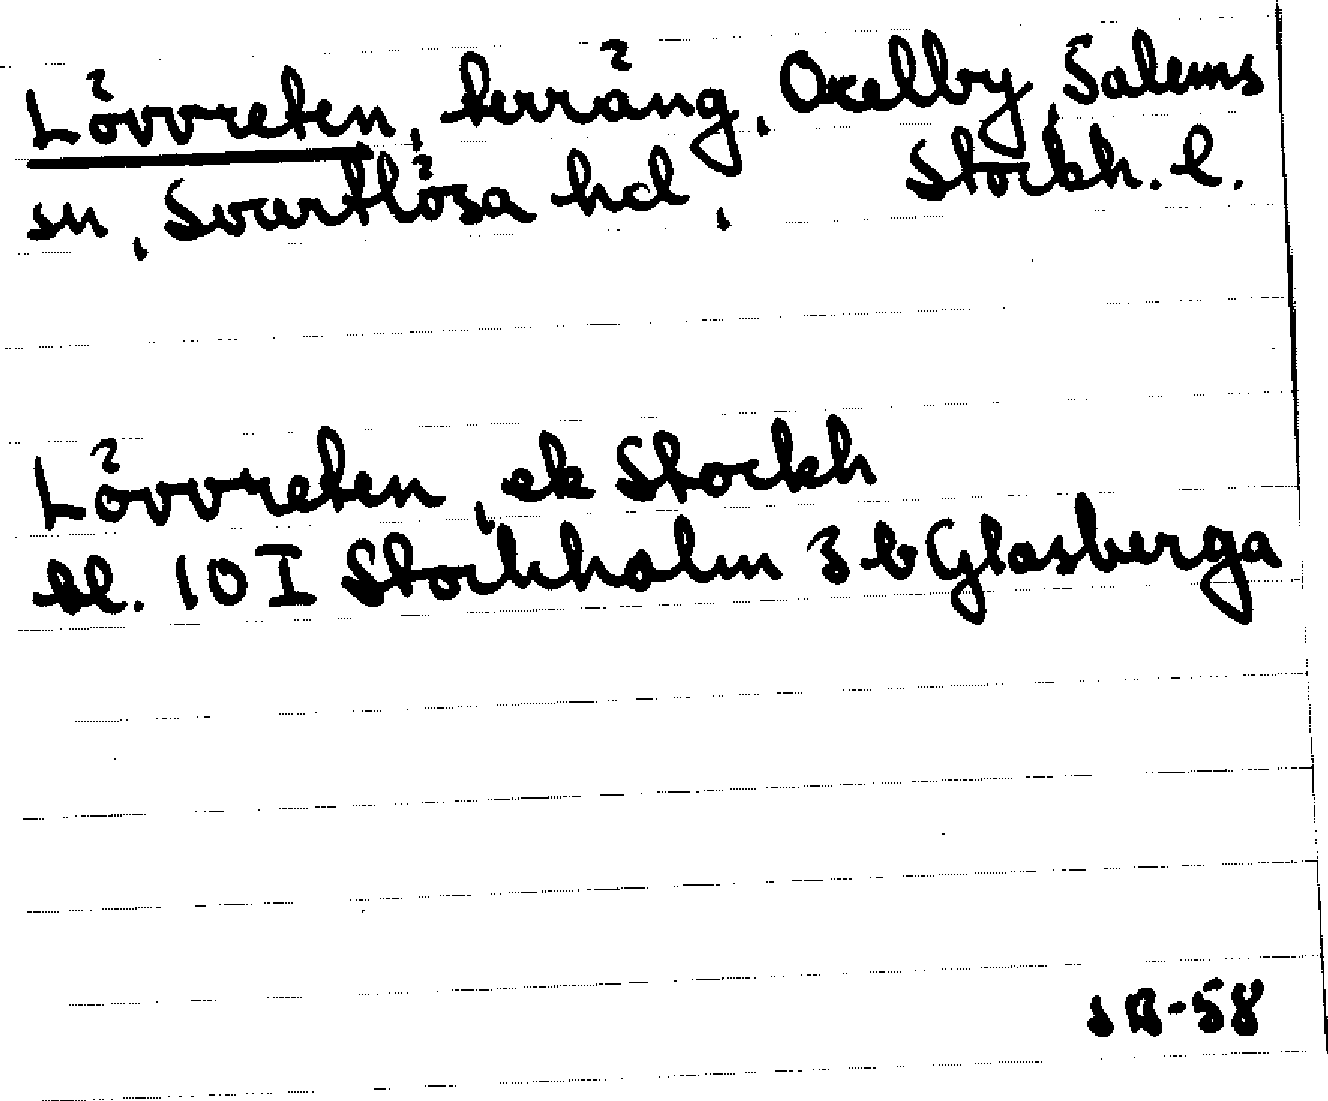 Lövvreten, terräng, Oxelby, Salems
sn, Svartlösa hd, Stockh. l.
Lövvreten, ek Stockh
bl. 10 I Stockholm 3 b Glasberga
SB-58